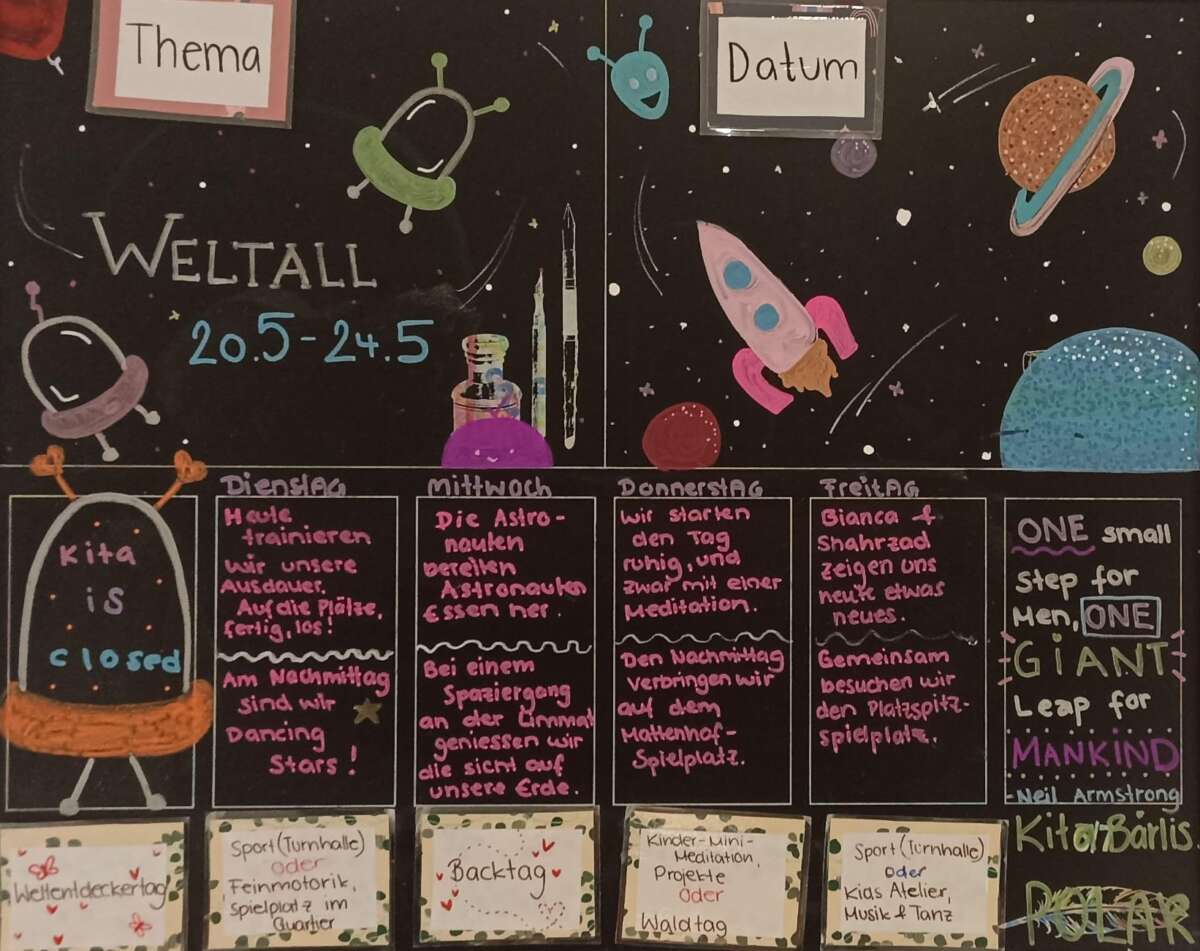 Thema
Datum
WELTALL
20.5-24.5
Kita
is
closed
Dienstag
Heute
trainieren
wir unsere
Ausdauer.
Auf die Plätze,
fertig, los!
Am Nachmittag
sind wir
Dancing
Stars!
Mittwoch
Die Astro-
nauten
bereiten
Astronauten
Essen her.
Bei einem
Spaziergang
an der Limmat
geniessen wir
die sicht auf
unsere Erde.
Donnerstag
Wir starten
den Tag
ruhig, und
zwar mit einer
Meditation.
Den Nachmittag
verbringen wir
auf dem
Mattenhof-
Spielplatz.
Freitag
Bianca &
Shahrzad
zeigen uns
heute etwas
neues.
Gemeinsam
besuchen wir
den Platzspitz-
spielplatz.
ONE small
Step for
Men, ONE
GIANT
Leap for
MANKIND
-Neil Armstrong
Weltentdeckertag
Sport (Turnhalle)
oder
Feinmotorik,
Spielplatz im
Quartier
Backtag
Kinder-Mini-
Meditation,
Projekte
Oder
Waldtag
Sport (Turnhalle)
Oder
Kids Atelier,
Musik & Tanz
Bärlis
POLAR